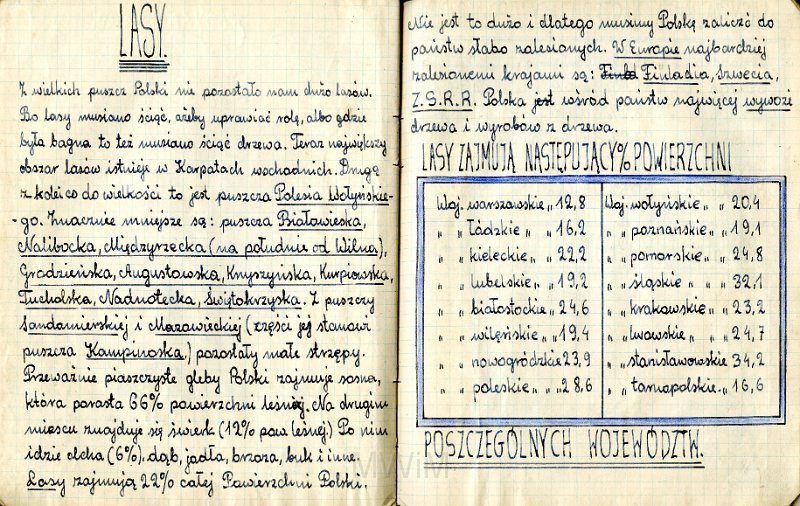 LASY.
Z wielkich puszcz Polski nie pozostało nam dużo lasów.
Bo lasy musiano ściąć, ażeby uprawiać rolę, albo gdzie
była bagna to też musiano ściąć drzewa. Teraz największy
obszar lasów istnieje w Karpatach wschodnich. Drugą
z kolei co do wielkości to jest puszcza Polesia Wołyńskie-
-go. Znacznie mniejsze są: puszcza Białowieska,
Nalibocka, Międzyrzecka (na południe od Wilna),
Grodzieńska, Augustowska, Knyszyńska, Kurpiowska,
Tucholska, Nadnotecka, Świętokrzyska. Z puszczy
Sandomierskiej i Mazowieckiej (części jej stanowi
puszcza Kampinoska) pozostały małe strzępy.
Przeważnie piaszczyste gleby Polski zajmuje sosna,
która porasta 66% powierzchni leśnej. Na drugim
miejscu znajduje się świerk (12% pow. leśnej.) Po nim
idzie olcha (6%). dąb, jodła, brzoza, buk i inne.
Lasy zajmują 22% całej Powierzchni Polski.
Nie jest to dużo i dlatego musimy Polskę zaliczć do
państw słabo zalesionych. W Europie najbardziej
zalesionemi krajami są: Finld Finladia, Szwecja,
Z.S.R.R. Polska jest wśród państw najwięcej wywozi
drzewa i wyrobów z drzewa.
LASY ZAJMUJĄ NASTĘPUJĄCY % POWIERZCHNI
Woj. warszawskie „ 12,8
„ „ Łódzkie „ 16,2
„ „ kieleckie „ 22,2
„ „ lubelskie „ 19,2
„ „ białostockie „ 24,6
„ „ wileńskie „ 19,4
„ „ nowogródzkie 23,9
„ „ poleskie „ „ 28,6
Woj. wołyńskie „ „ 20,4
„ „ poznańskie „ 19,1
„ „ pomorskie „ 24,8
„ „ śląskie „ „ 32,1
„ „ krakowskie „ 23,2
„ „ lwowskie „ „ 24,7
„ „ stanisławowskie 34,2
„ „ tarnopolskie „ 16,6
POSZCZEGÓLNYCH WOJEWÓDZTW.
MWiM